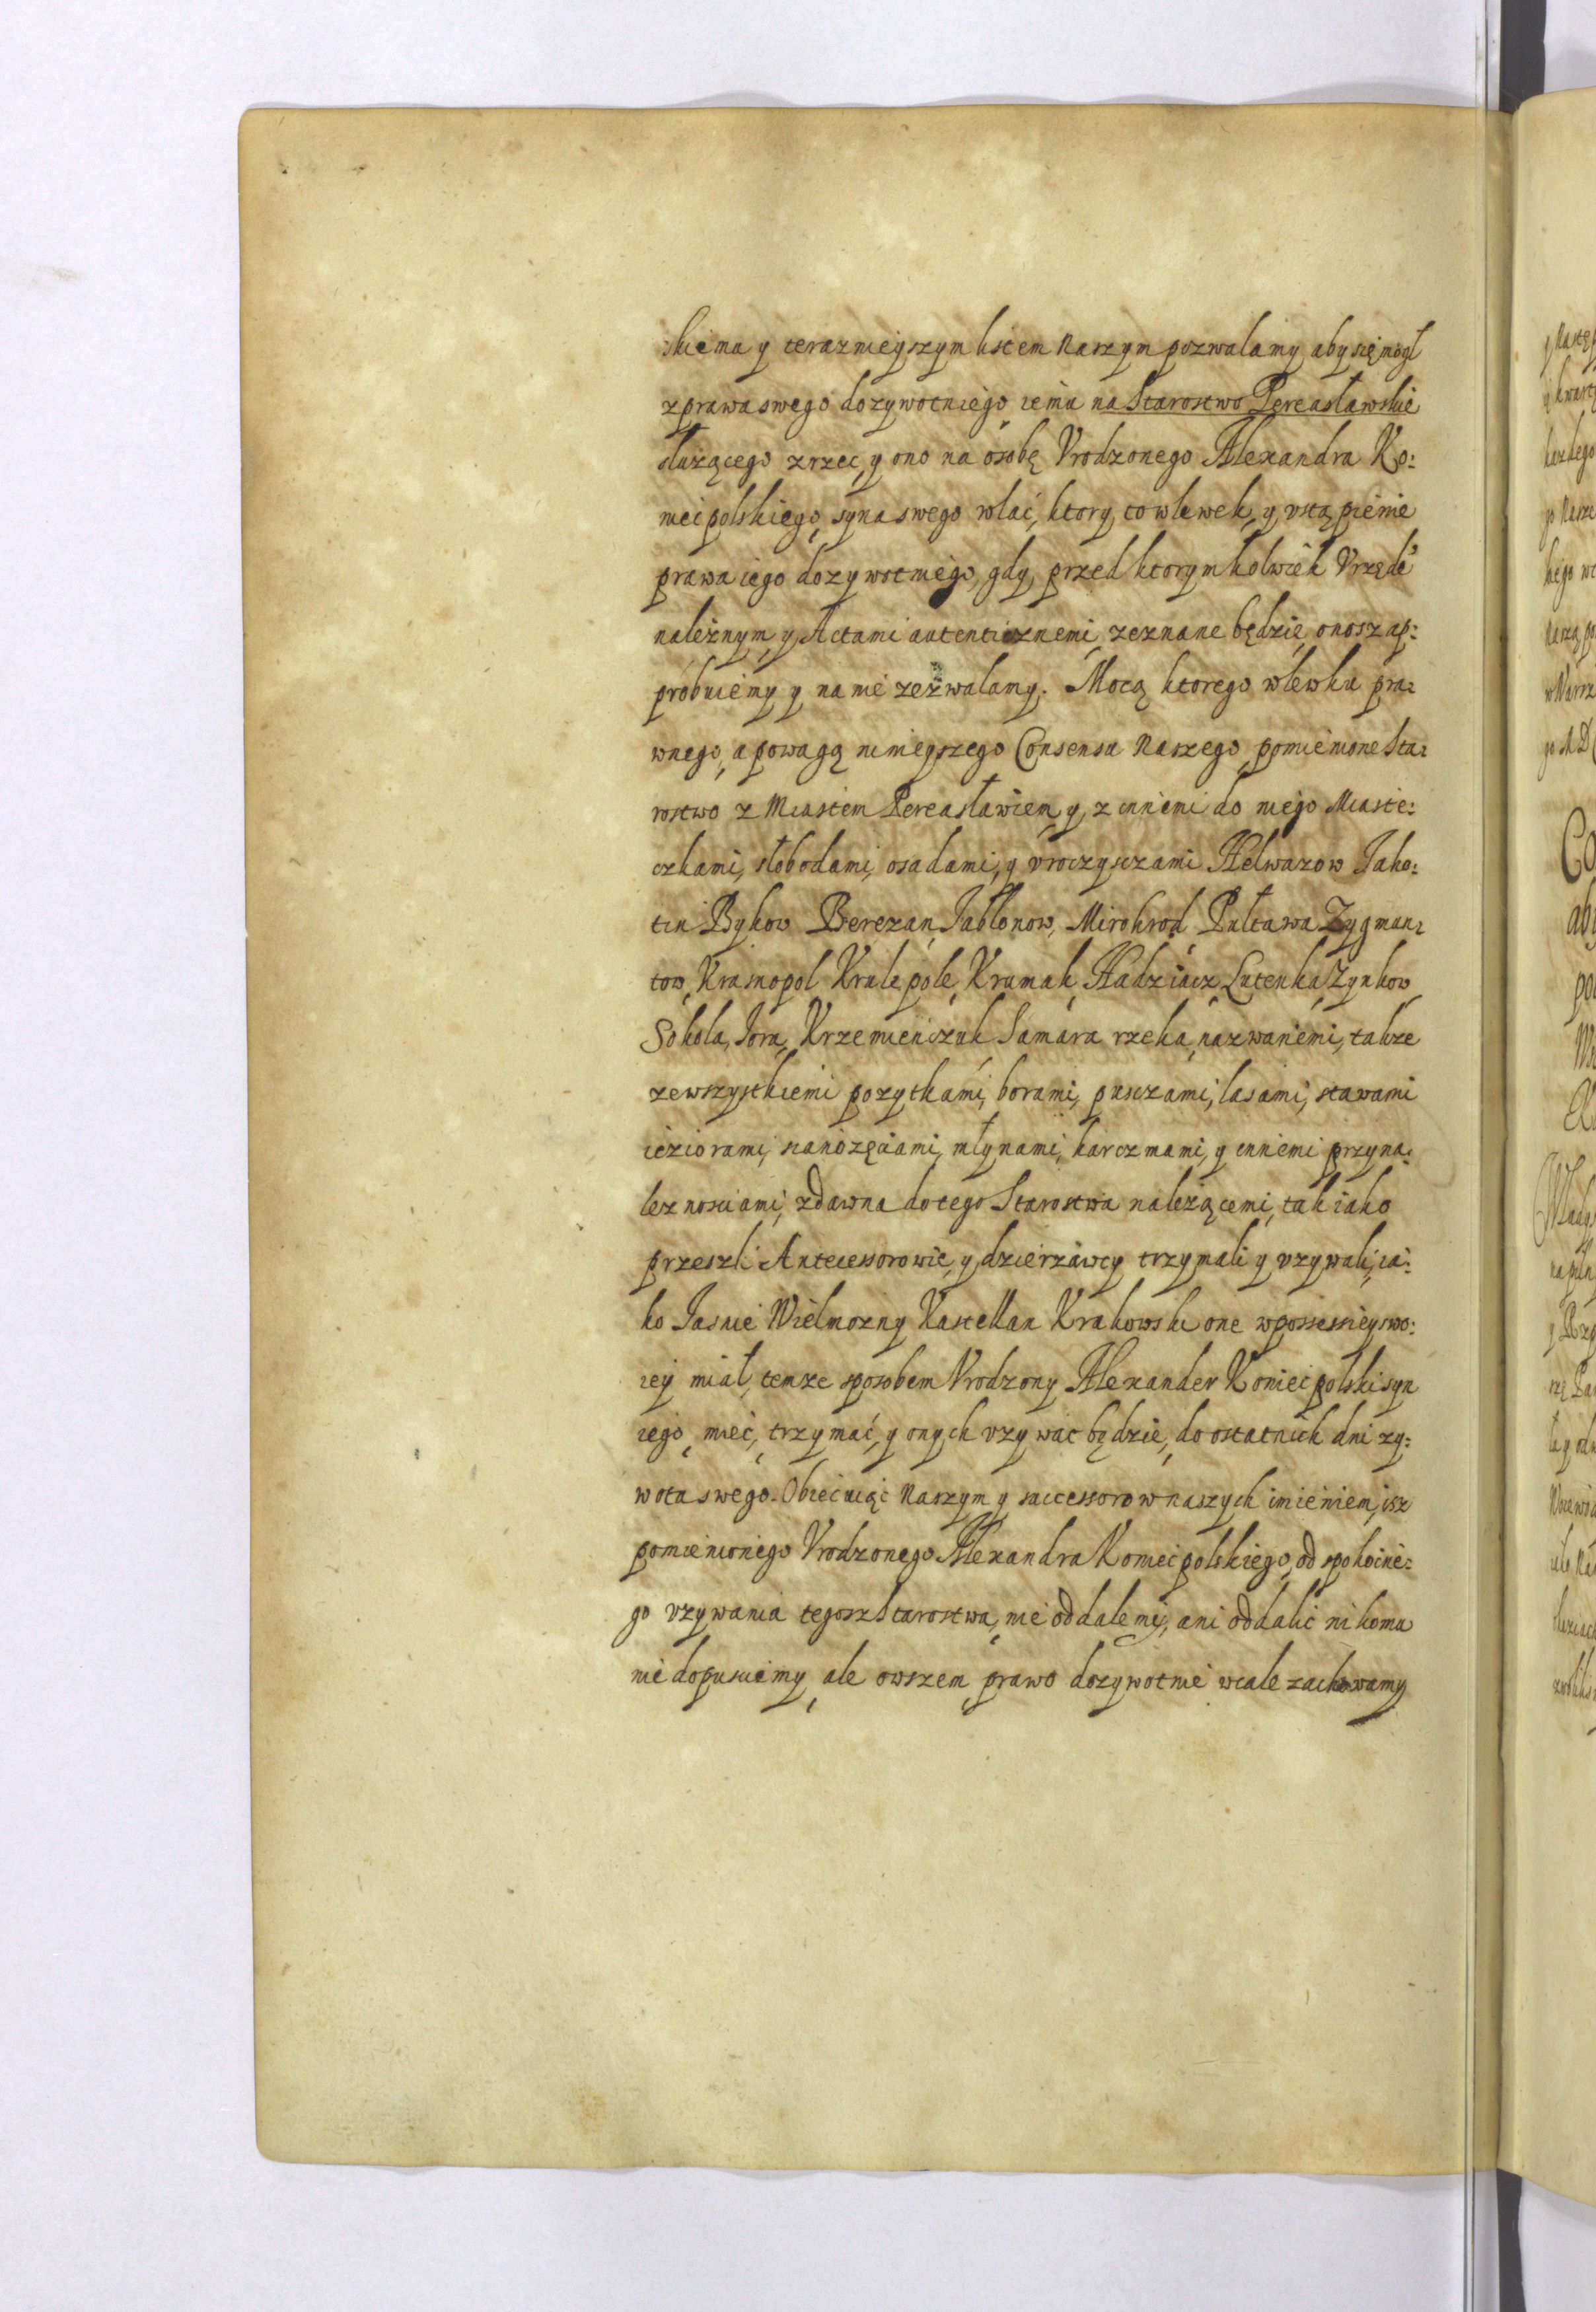 skiemu y teraznieyszym listem Naszym pozwalamy aby się mogł
z prawa swego dozywotniego iemu na Starostwo Pereasławskie
służącego zrzec, y ono na osobę Vrodzonego Alexandra Ko:
niecpolskiego, syna swego wlać, ktory to wlewek, y vstąpienie
prawa iego dozywotniego, gdy przed ktorymkolwiek Vrzęde
należnym, y Actami autenticznemi, zeznane będzie, onosz ap:
probuiemy y na nie zezwalamy. Mocą ktorego wlewku pra:
wnego, a powagą ninieyszego Consensu Naszego, pomienione Sta:
rostwo z Miastem Pereasławiem y z innemi do niego Miaste:
czkami, słobodami, osadami, y vroczysczami Helwazow Jaho:
tin Bykow Berezan, Jabłonow, Mirohrod, Pułtawa Zygmun:
tow, Krasnopol Krulepole, Krumak, Hadziacz, Lutenka, Zynkow,
Sokola, Jora, Krzemieńczuk Samara rzeka, nazwanemi, takze
ze wszystkiemi pozytkami, borami, pusczami, lasami, stawami
ieziorami, sianozęciami, młynami, karczmami, y innemi przyna:
leznosciami, zdawna do tego Starostwa należącemi, tak iako
przeszli Antecessorowie, y dzierzawcy trzymali y vzywali, ia:
ko Jasnie Wielmozny Kasztellan Krakowski one w possessiey swo:
iey miał, temze sposobem Vrodzony Alexander Koniecpolski syn
iego mieć, trzymać, y onych vzywac będzie, do ostatnich dni zy:
wota swego. Obiecuiąc Naszym y successorow naszych imieniem, isz
pomienionego Vrodzonego Alexandra Koniecpolskiego, od spokoine:
go vzywania tegosz Starostwa, nie oddalemy, ani oddalić nikomu
nie dopusciemy, ale owszem prawo dozywotnie wcale zachowamy